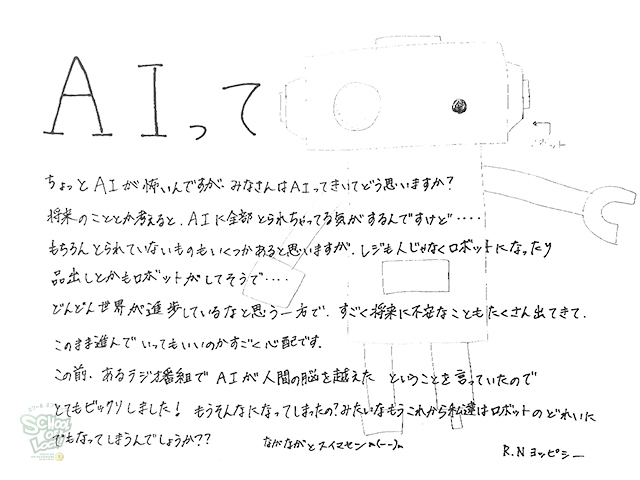 AIって
ロボット
ちょっとAIが怖いんですが、みなさんはAIってきいてどう思いますか?
将来のこととか考えると、AIに全部とられちゃってる気がするんですけど‥‥
もちろんとられていないものもいくつかあると思いますが、レジも人じゃなくロボットになったり
品出しとかもロボットがしてそうで‥‥
どんどん世界が進歩しているなと思う一方で、すごく将来に不安なこともたくさん出てきて、
このまま進んでいってもいいのかすごく心配です。
この前、あるラジオ番組でAIが人間の脳を越えた ということを言っていたので
とてもビックリしました! もうそんなになってしまったの?みたいなもうこれから私達はロボットのどれいに
でもなってしまうんでしょうか??
ながながとスイマセンm(--)m
R.N ヨッピシー
SCHOOL OF LOCK!